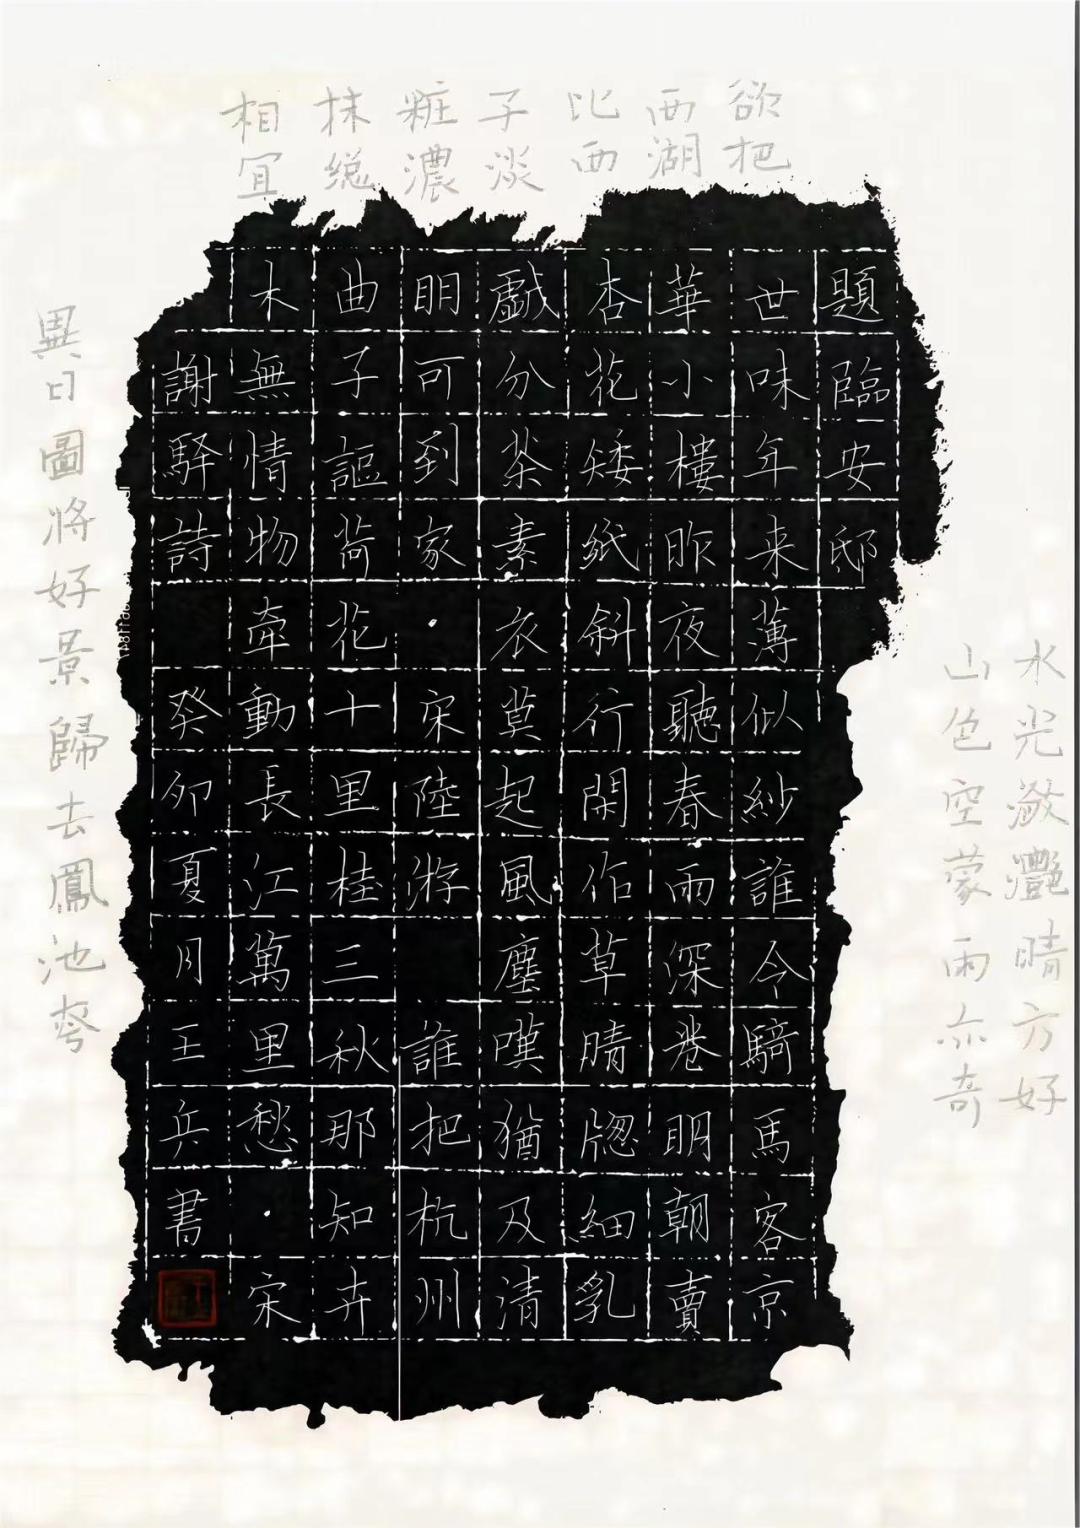 水光瀲灧晴方好
山色空蒙雨亦奇
欲把
西湖
比西
子淡
粧濃
抹緫
相冝
異日圖將好景歸去鳳池
題臨安邸
世味年来薄似紗誰今騎馬客京
華小樓昨夜聽春雨深巷眀朝賣
杏花矮紙斜行閑作草晴牕細乳
戲分茶素衣莫起風塵嘆猶及清
眀可到家·宋陸游 誰把杭州
曲子謳荷花十里桂三秋那知卉
木無情物牽動長江萬里愁·宋
謝驛詩 癸卯夏月王兵書